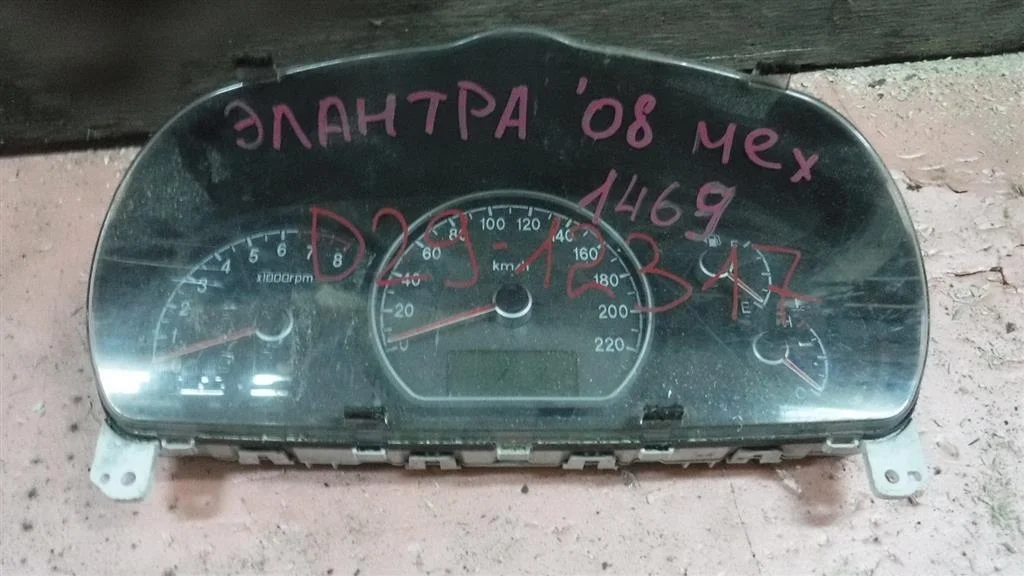 ЭЛАНТРА '08 мех
1469
D29-12317
1 2 3 4 5 6 7 8
x1000rpm
0 20 40 60 80 100 120 140 160 180 200 220
km/h
F
E
H